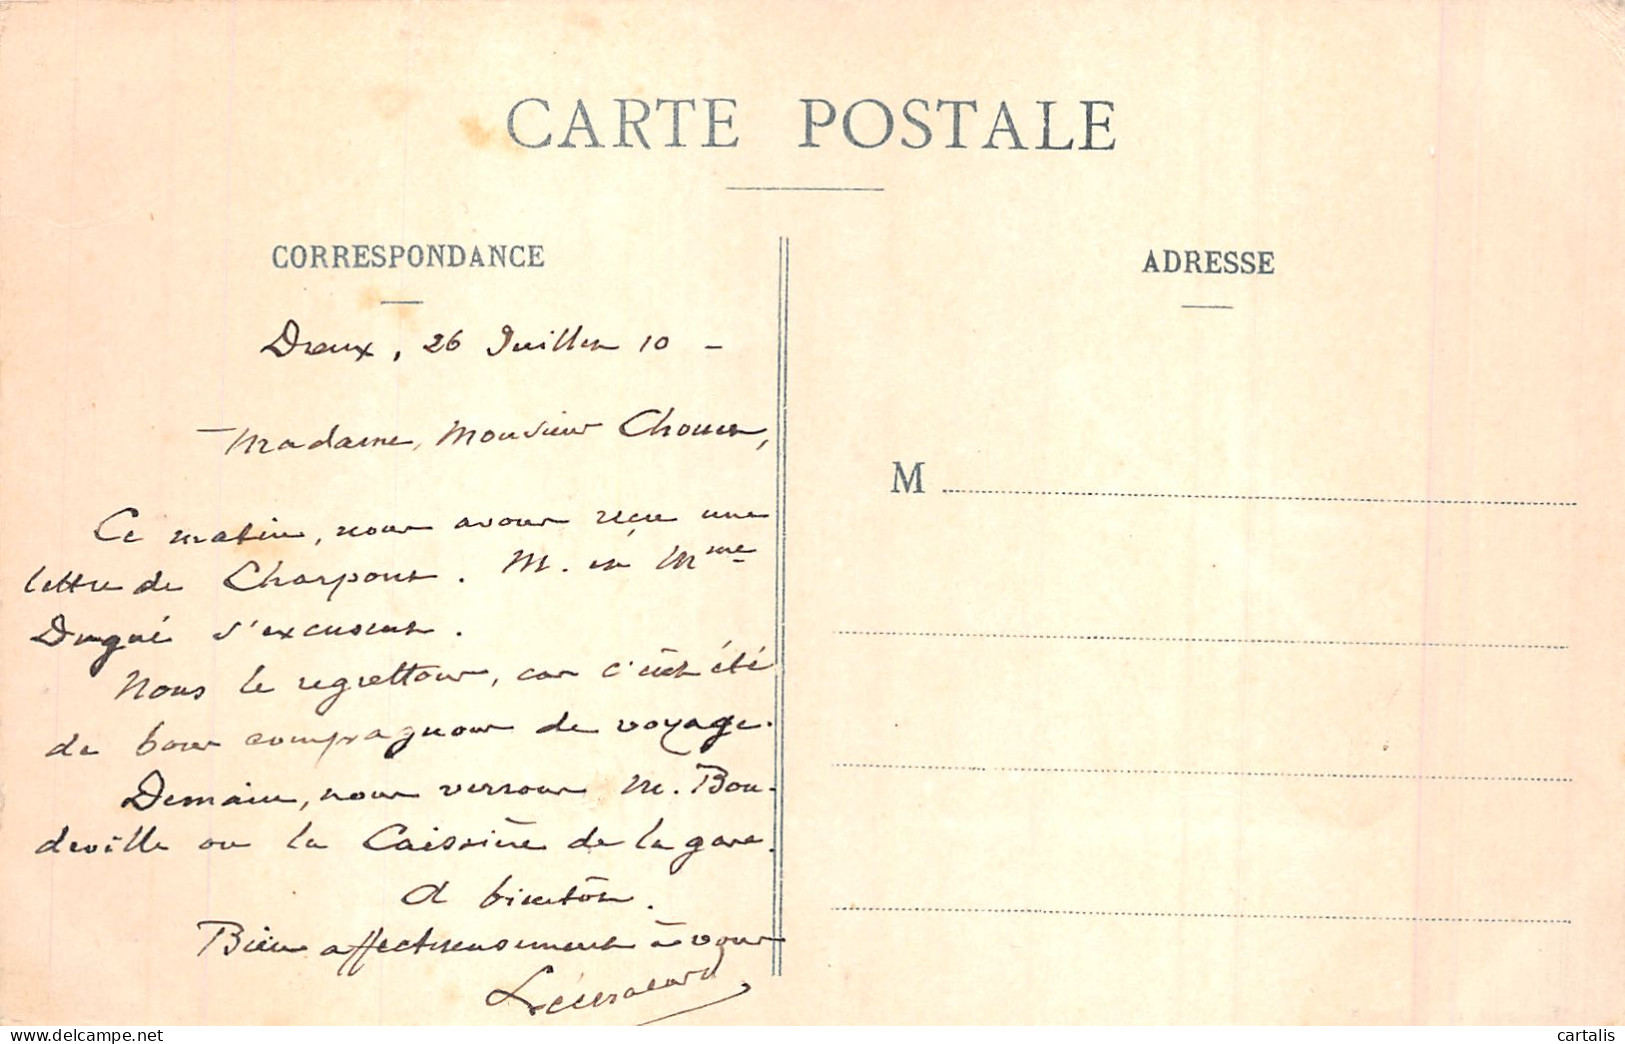 CARTE POSTALE
CORRESPONDANCE
ADRESSE
Dreux, 26 Juillet 10 -
Madame, Monsieur
Ce matin, nous avons reçu une
lettre de Charpont. M. et Mme
Dugué s'excusent.
Nous le regrettons, car c'eût été
de bons compagnons de voyage.
Demain, nous verrons M. Bou-
deville ou la Caissière de la gare.
A bientôt.
Bien affectueusement à vous
M
cartalis